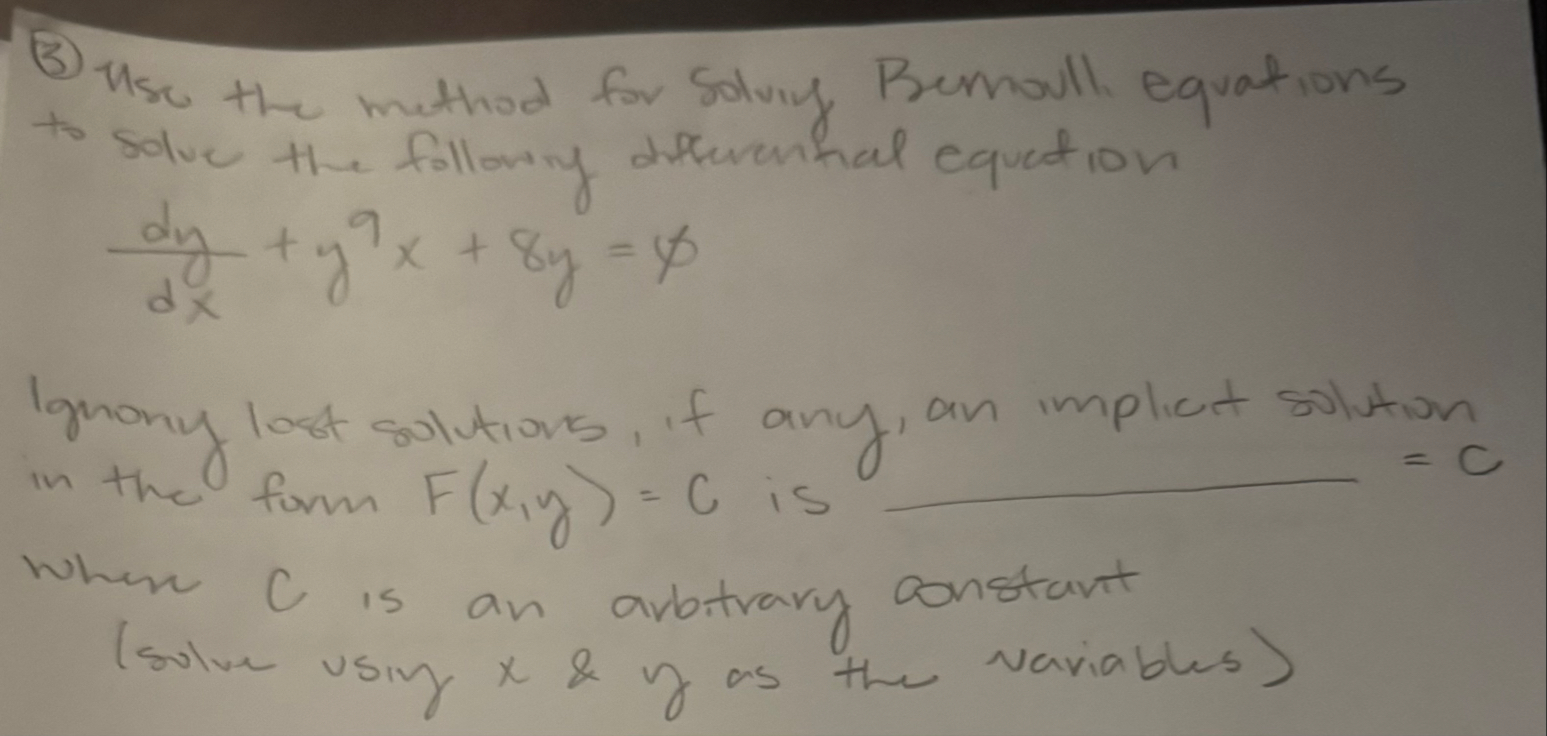 ③ Use the method for solving Bernoulli equations
to solve the following differential equation
dy/dx + y⁹x + 8y = 0
Ignoring lost solutions, if any, an implicit solution
in the form F(x,y) = C is ____________ = C
where C is an arbitrary constant
(solve using x & y as the variables)